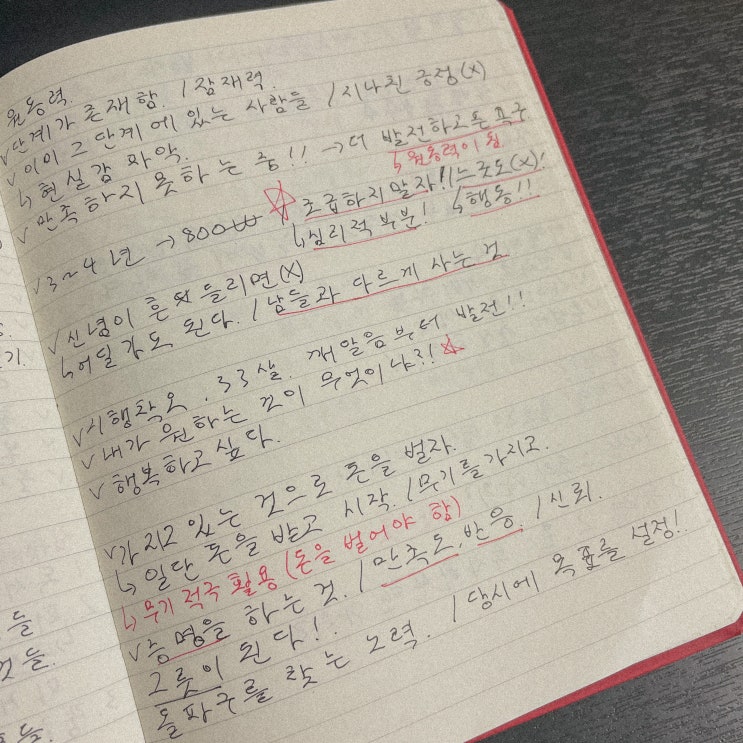 원동력.
∨단계가 존재함. / 잠재력.
∨이미 그 단계에 있는 사람들 / 지나친 긍정(X)
↳현실감 파악.
∨만족하지 못하는 중!! → 더 발전하고픈 욕구
↳원동력이 됨
∨3~4년 → 800₩ ☆ 조급하지말자! / 느긋도(X)!
↳심리적 부분! ↳행동!!
∨신념이 흔들리면(X)
↳어딜가도 된다. / 남들과 다르게 사는 것
∨시행착오. 33살. 깨알음부터 발전!!
∨내가 원하는 것이 무엇이냐?! ☆
∨행복하고 싶다.
∨가지고 있는 것으로 돈을 벌자.
↳일단 돈을 받고 시작. / 무기를 가지고.
↳무기 적극 활용 (돈을 벌어야 함)
∨증명을 하는 것. / 만족도, 반응. / 신뢰.
그릇이 된다!
돌파구를 찾는 노력. / 당시에 목표를 설정!
기.
들
것들.